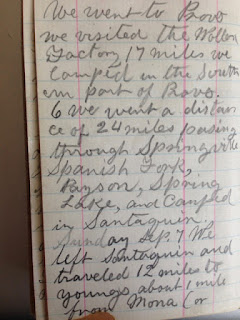 We went to Provo
we visited the Wollen
Factory 17 miles we
Camped in the South
ern part of Provo.
6 We went a distan
ce of 24 miles passing
through Springville
Spanish Fork,
Payson, Spring
Lake, and Camped
in Santaquin.
Sunday Sep. 7 We
left Santaquin and
traveled 12 miles to
Youngs about 1 mile
from Mona (or